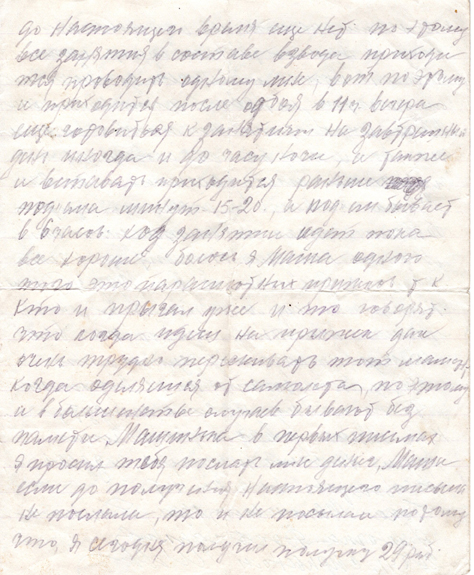 до настоящего время еще нет. поэтому
все занятия в составе взвода приходи
тся проводить одному мне, вот поэтому
и приходится после отбоя в 11 ч. вечера
еще готовиться к занятиям на завтрашний
день иногда и до часу ночи, а также
и вставать приходится раньше
подъема минут 15-20, а подъем бывает
в 6 часов. ход занятий идет пока
все хорошо боюсь я Маша одного
того это парашютных прыжков т к
кто и прыгал уже и то говорят
что когда идеш на прыжок то
очень трудно переживать тот момент
когда отделяешся от самолета, поэтому
а в большинстве случаев бывают без
памяти. Машинька в первых письмах
я просил тебя послать мне денег, Маша
если до получения настоящего письма
не послала, то и не посылай потому
что я сегодня получил получку 29 руб.